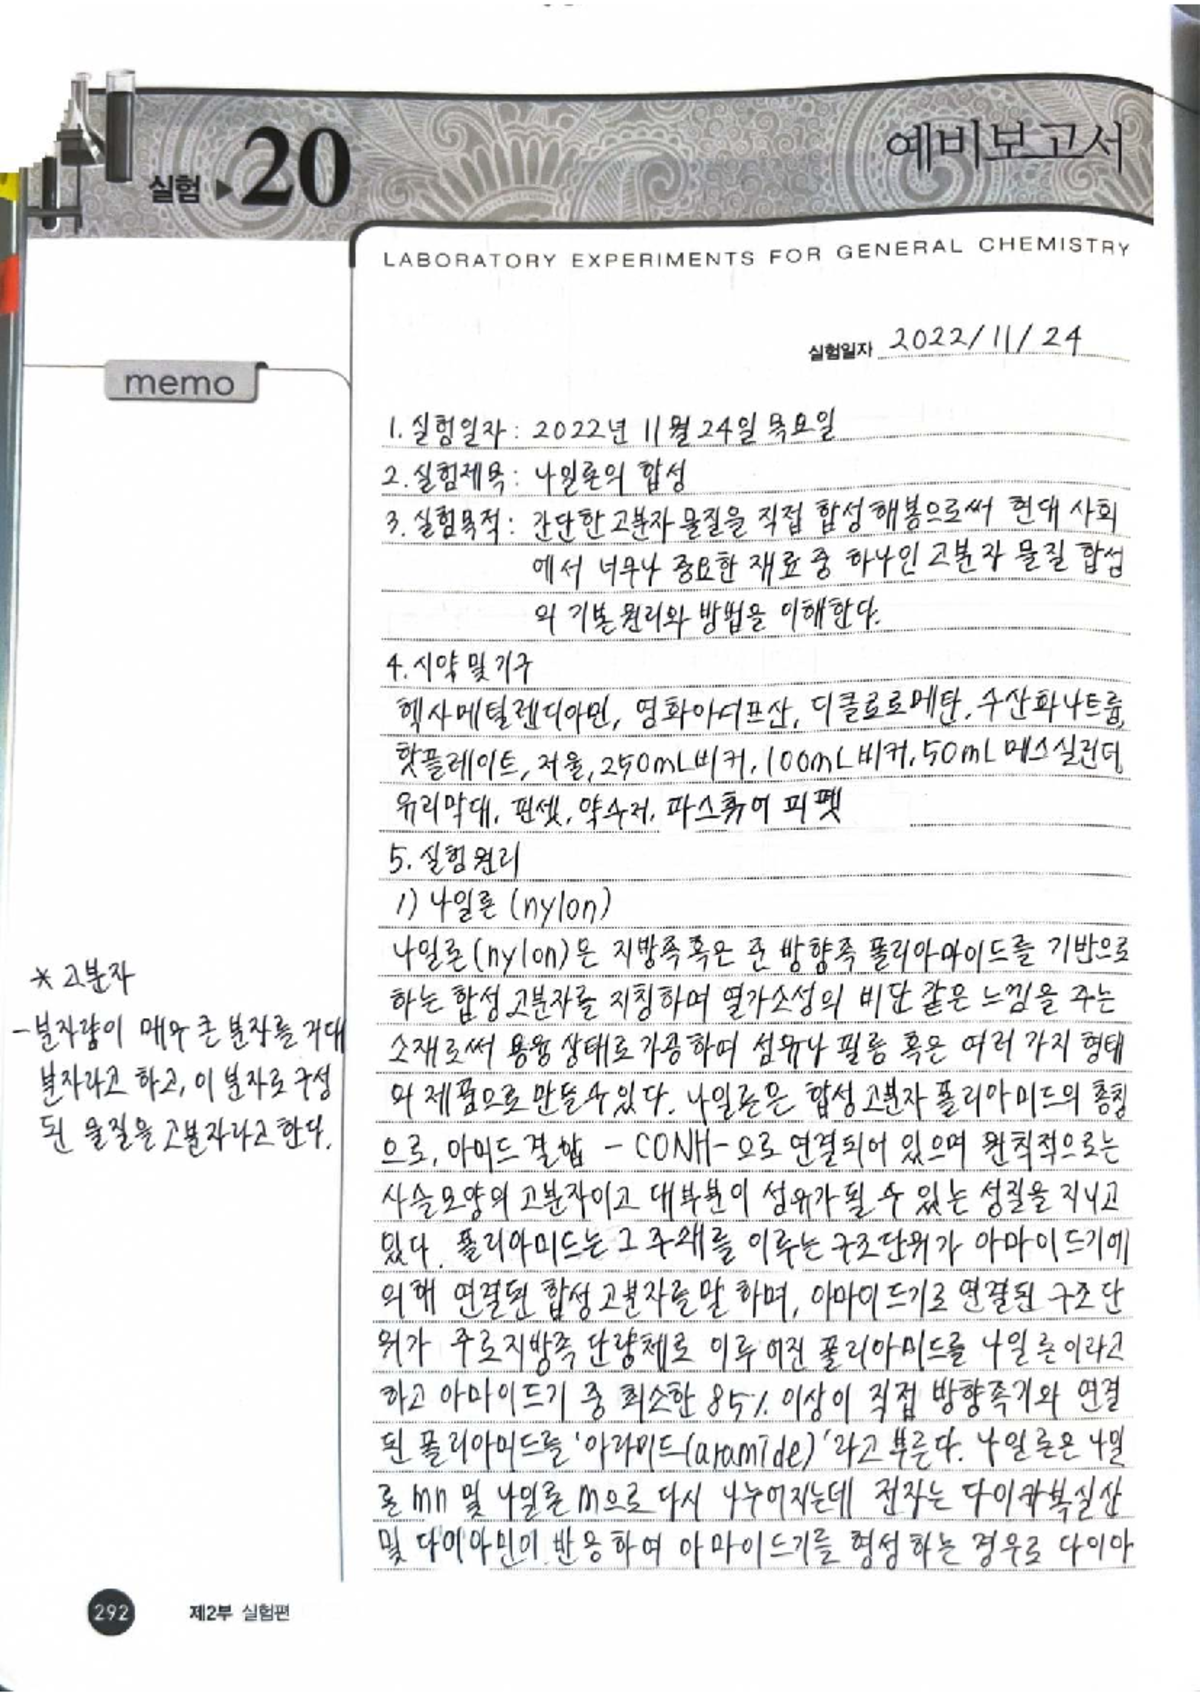 실험 ▶ 20
예비보고서
LABORATORY EXPERIMENTS FOR GENERAL CHEMISTRY
실험일자 2022/11/24
memo
1. 실험일자 : 2022년 11월 24일 목요일
2. 실험제목 : 나일론의 합성
3. 실험목적 : 간단한 고분자 물질을 직접 합성해봄으로써 현대 사회
에서 너무나 중요한 재료 중 하나인 고분자 물질 합성
의 기본 원리와 방법을 이해한다.
4. 시약 및 기구
헥사메틸렌디아민, 염화아디프산, 디클로로메탄, 수산화나트륨,
핫플레이트, 저울, 250mL비커, 100mL비커, 50mL 메스실린더
유리막대, 핀셋, 약수저, 파스퓨어 피펫
5. 실험원리
1) 나일론 (nylon)
나일론(nylon)은 지방족 혹은 준 방향족 폴리아마이드를 기반으로
하는 합성 고분자를 지칭하며 열가소성의 비단 같은 느낌을 주는
소재로써 용융 상태로 가공하여 섬유나 필름 혹은 여러 가지 형태
의 제품으로 만들 수 있다. 나일론은 합성고분자 폴리아미드의 총칭
으로, 아미드 결합 -CONH-으로 연결되어 있으며 원칙적으로는
사슬모양의 고분자이고 대부분이 섬유가 될 수 있는 성질을 지니고
있다. 폴리아미드는 그 주쇄를 이루는 구조단위가 아마이드기에
의해 연결된 합성고분자를 말하며, 아마이드기로 연결된 구조 단
위가 주로 지방족 단량체로 이루어진 폴리아미드를 나일론이라고
하고 아마이드기 중 최소한 85% 이상이 직접 방향족기와 연결
된 폴리아미드를 '아라미드(aramide)'라고 부른다. 나일론은 나일
론 mn 및 나일론 m으로 다시 나누어지는데 전자는 다이카복실산
및 다이아민이 반응하여 아마이드기를 형성하는 경우로 다이아
* 고분자
- 분자량이 매우 큰 분자를 거대
분자라고 하고, 이 분자로 구성
된 물질을 고분자라고 한다.
292 제2부 실험편